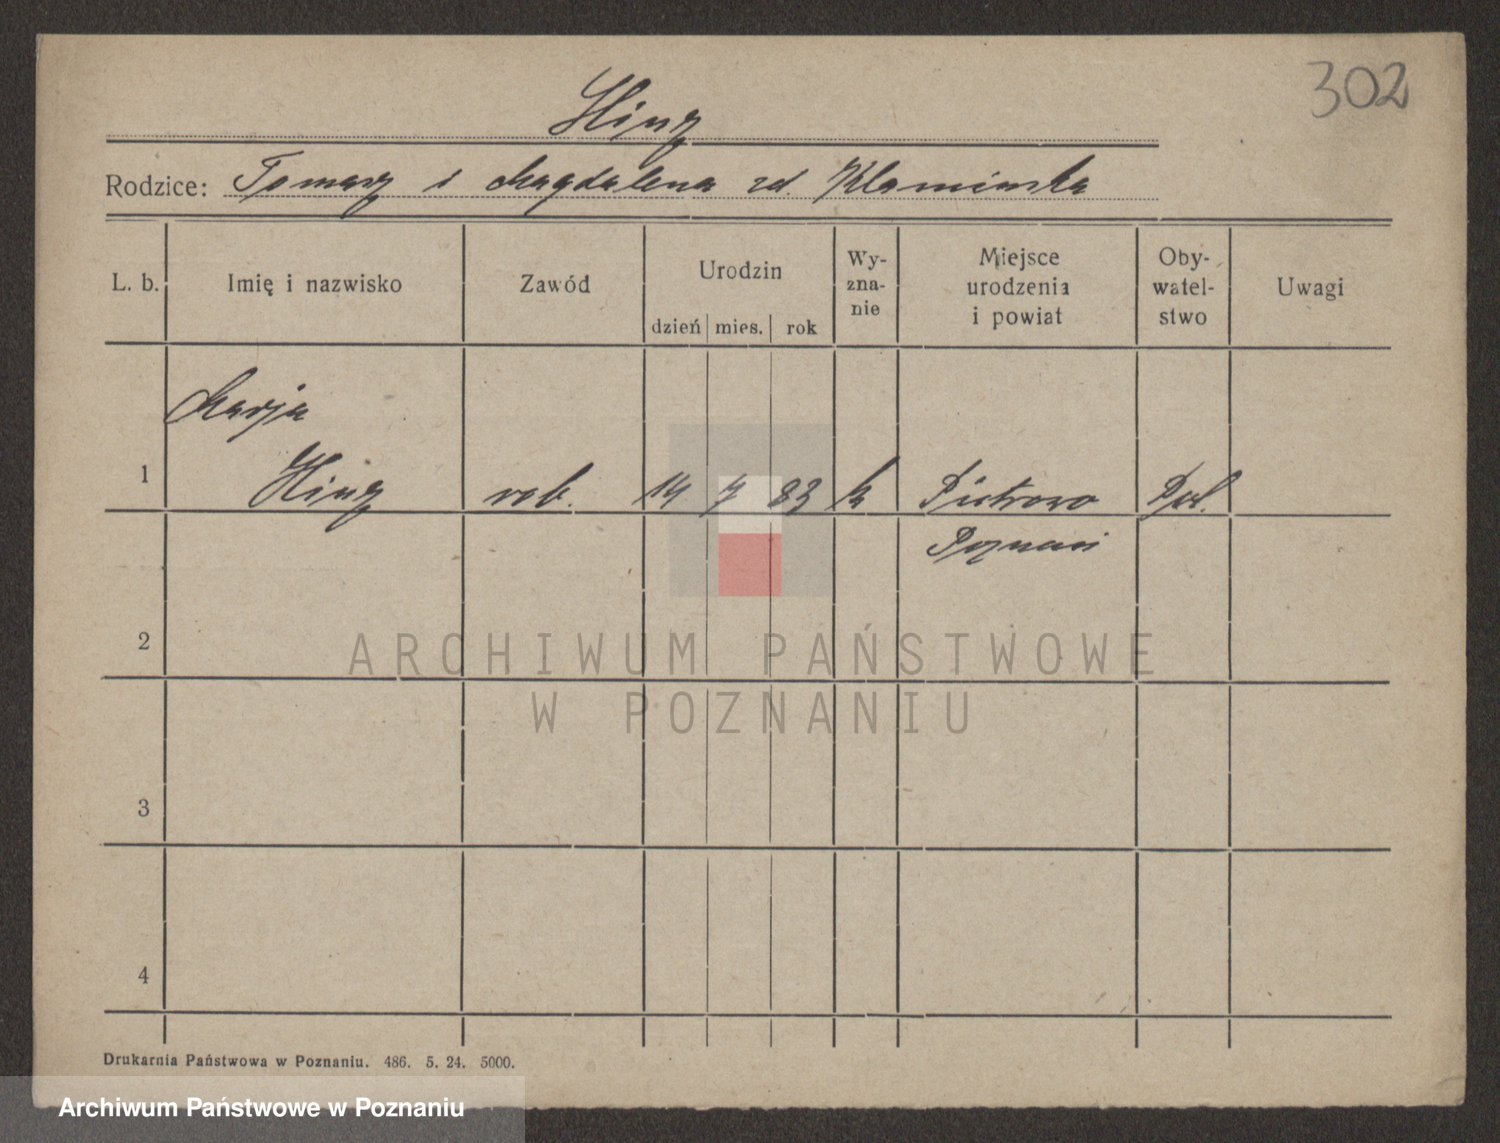 302
Hinz
Rodzice: Tomasz i Magdalena zd. Klamińska
L. b. Imię i nazwisko Zawód Urodzin dzień mies. rok Wy-zna-nie Miejsce urodzenia i powiat Oby-watel-stwo Uwagi
Marja
1 Hinz rob. 14 7 83 k Piotrowo Pol.
Poznań
2
ARCHIWUM PAŃSTWOWE
W POZNANIU
3
4
Drukarnia Państwowa w Poznaniu. 486. 5. 24. 5000.
Archiwum Państwowe w Poznaniu